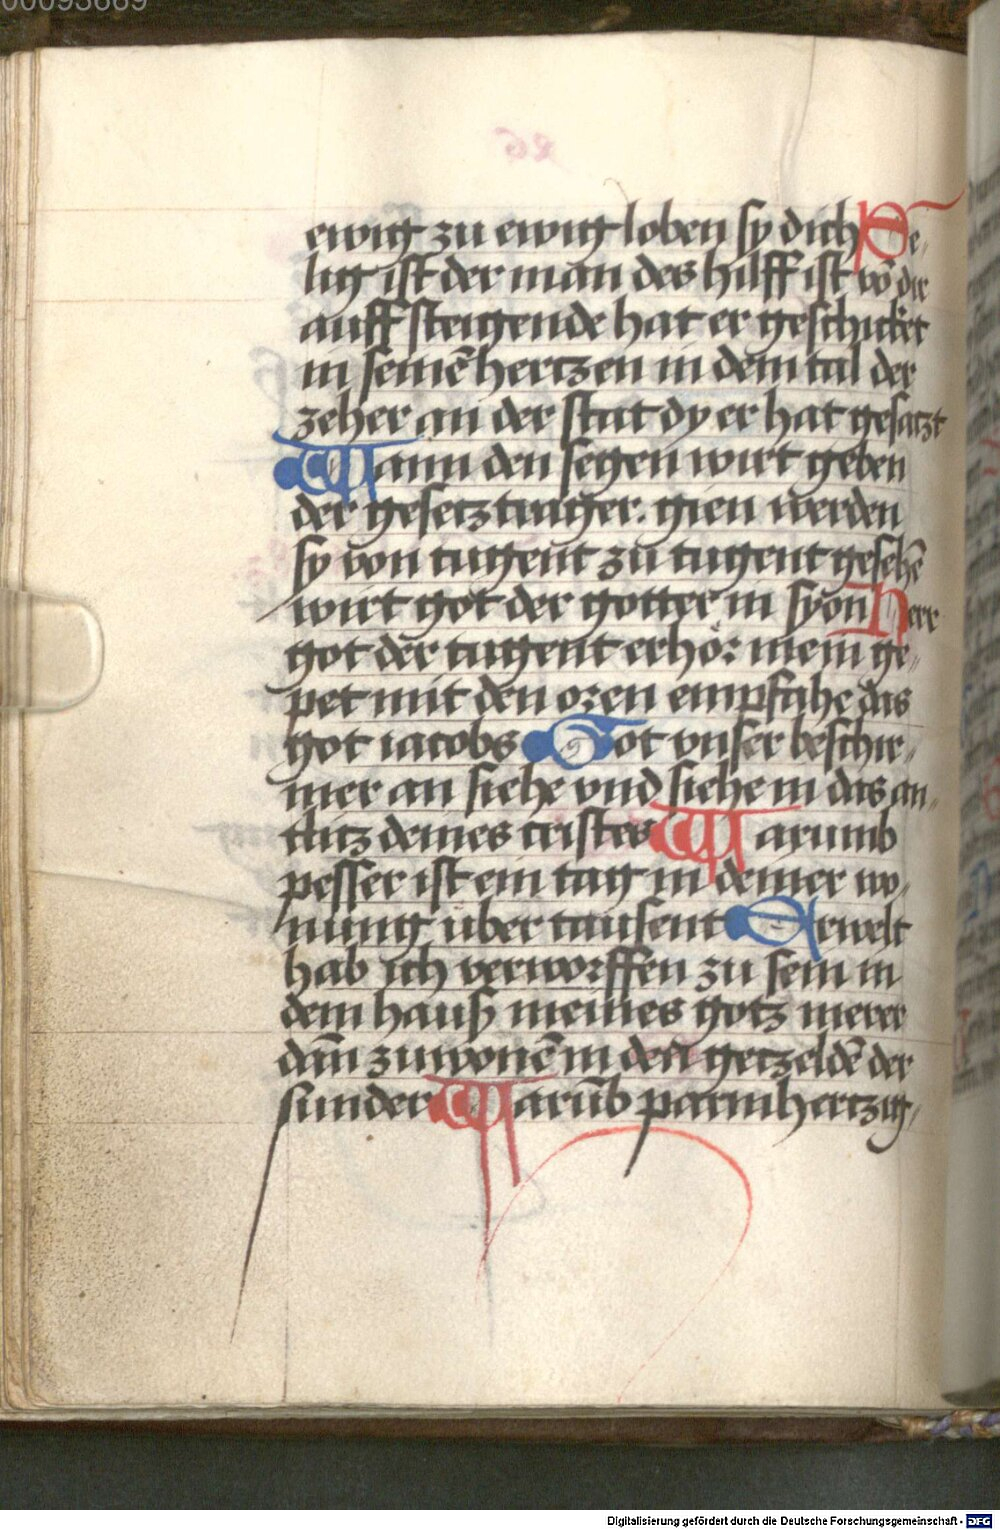 00093669
ewig zu ewig loben sy dich Se-
lig ist der man des hilff ist vō dir
auff steigende hat er geschicket
in seinē hertzen in dem tal der
zeher an der stat dy er hat gesatzt
Wann den segen wirt geben
der gesetz trager. gien werden
sy von tugent zu tugent gesehē
wirt got der gotter in syon Herr
got der tugent erhör mein ge-
pet mit den oren empfahe das
got iacobs Got vnser beschir-
mer an siehe vnd siehe in das an-
tlitz deines cristes Warumb
pesser ist ein tag in deiner wo-
nung über tausent Erwelt
hab ich verworffen zu sein in
dem hauß meines gotz merer
dān zuwonē in den getzeldē der
sunder Warūb parmhertzig-
Digitalisierung gefördert durch die Deutsche Forschungsgemeinschaft - DFG